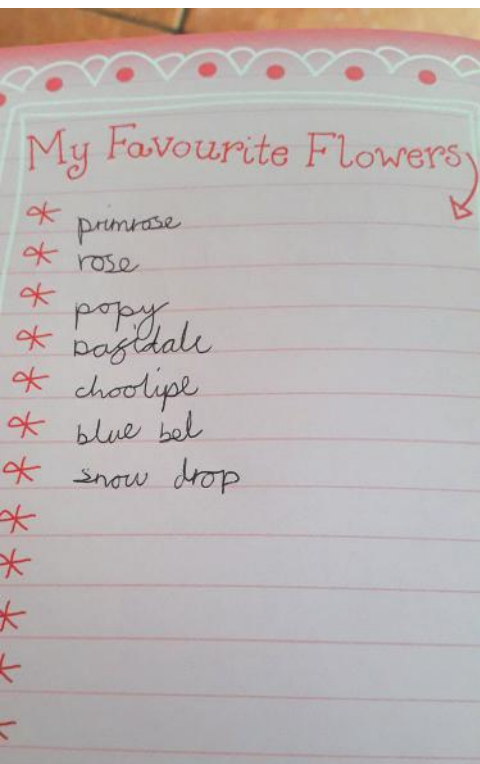 My Favourite Flowers
primrose
rose
popy
dafidale
choolipe
blue bel
snow drop